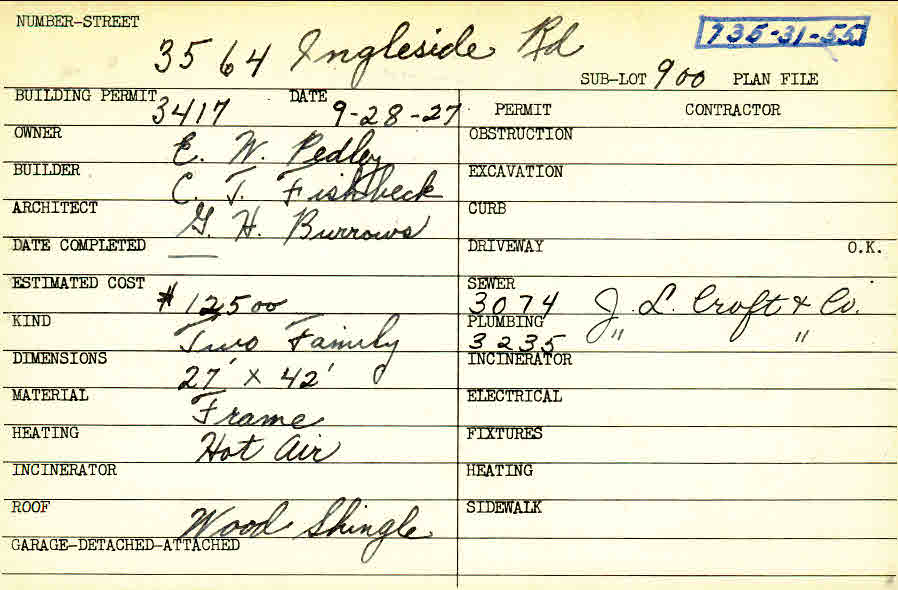 NUMBER-STREET 3564 Ingleside Rd 735-31-55
SUB-LOT 900 PLAN FILE
BUILDING PERMIT 3417 DATE 9-28-27 PERMIT CONTRACTOR
OWNER E. W. Pedley OBSTRUCTION
BUILDER C. T. Fishbeck EXCAVATION
ARCHITECT G. H. Burrows CURB
DATE COMPLETED — DRIVEWAY O.K.
ESTIMATED COST $12500 SEWER 3074 J. L. Croft & Co.
KIND Two Family PLUMBING 3235 " "
DIMENSIONS 27' x 42' INCINERATOR
MATERIAL Frame ELECTRICAL
HEATING Hot Air FIXTURES
INCINERATOR HEATING
ROOF Wood Shingle SIDEWALK
GARAGE-DETACHED-ATTACHED